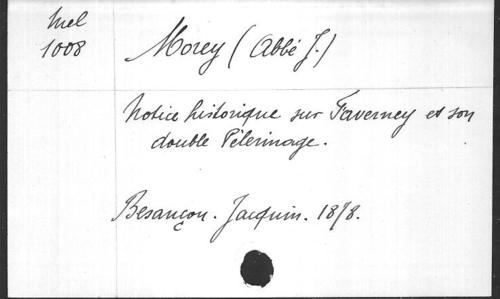 Mel
1008
Morey (Abbé J.)
Notice historique sur Faverney et son
double Pèlerinage.
Besançon. Jacquin. 1878.